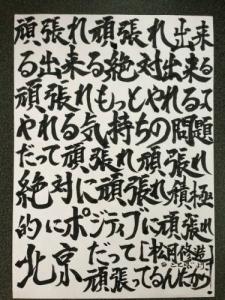 頑張れ頑張れ出来
る出来る絶対出来る
頑張れもっとやれるよ
やれる気持ちの問題
だって頑張れ頑張れ
絶対に頑張れ積極
的にポジティブに頑張れ
北京だって[松岡修造]
頑張ってるんだから!